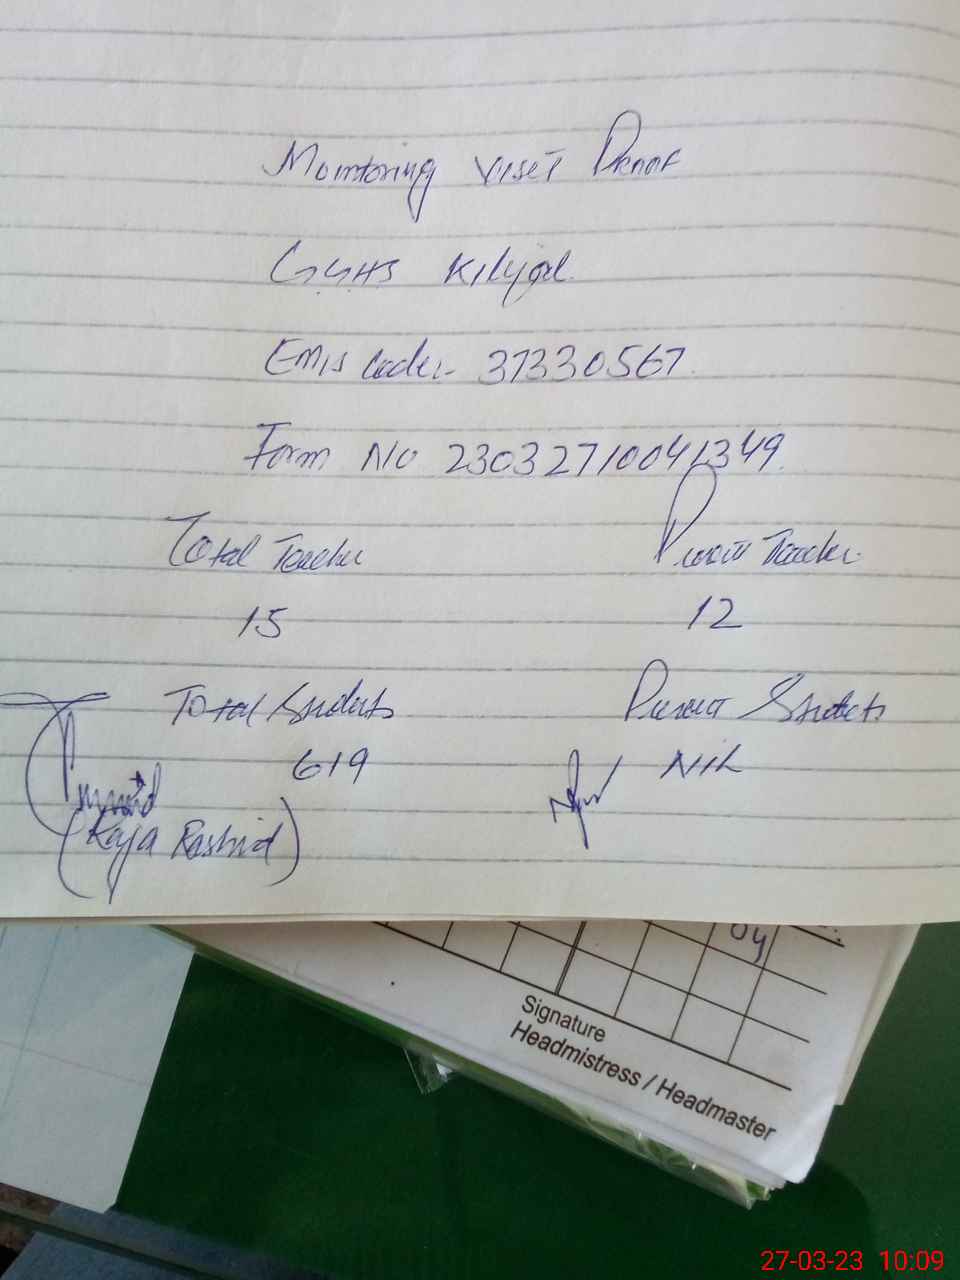 Monitoring Visit Proof
GGHS Kilyal
EMIS Code:- 37330567
Form No 23032710041349
Total Teacher Present Teacher
15 12
Total Students Present Students
619 Nil
(Raja Rashid)
04
Signature
Headmistress / Headmaster
27-03-23 10:09